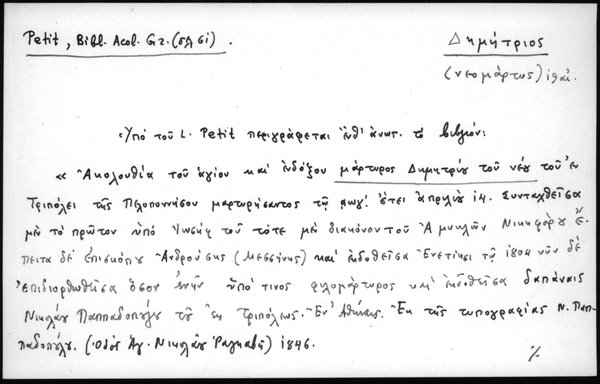 Petit, Bibl. Acol. Gr. (σελ 61).
Δημήτριος
(νεομάρτυς)
Ὑπό τοῦ L. Petit περιγράφεται ἐνθ' ἀνωτ. τό βιβλίον:
« Ἀκολουθία τοῦ ἁγίου καί ἐνδόξου μάρτυρος Δημητρίου τοῦ νέου τοῦ ἐν
Τριπόλει τῆς Πελοποννήσου μαρτυρήσαντος τῷ αωγ' ἔτει ἀπριλίου 14. Συνταχθεῖσα
μέν τό πρῶτον ὑπό Ἰωσήφ τοῦ τότε μέν διακόνου τοῦ Ἀμυκλῶν Νικηφόρου ἔ-
πειτα δέ ἐπισκόπου Ἀνδρούσης (Μεσσήνης) καί ἐκδοθεῖσα Ἐνετίησι τῷ 1804 νῦν δέ
ἐπιδιορθωθεῖσα ὅσον ἐνῆν ὑπό τινος φιλομάρτυρος καί ἐκδοθεῖσα δαπάναις
Νικολάου Παππαδοπούλου τοῦ ἐκ Τριπόλεως. Ἐν Ἀθήναις. Ἐκ τῆς τυπογραφίας Ν. Παπ-
παδοπούλου. (Ὁδός Ἁγ. Νικολάου Ραγκαβῆ) 1846.
%